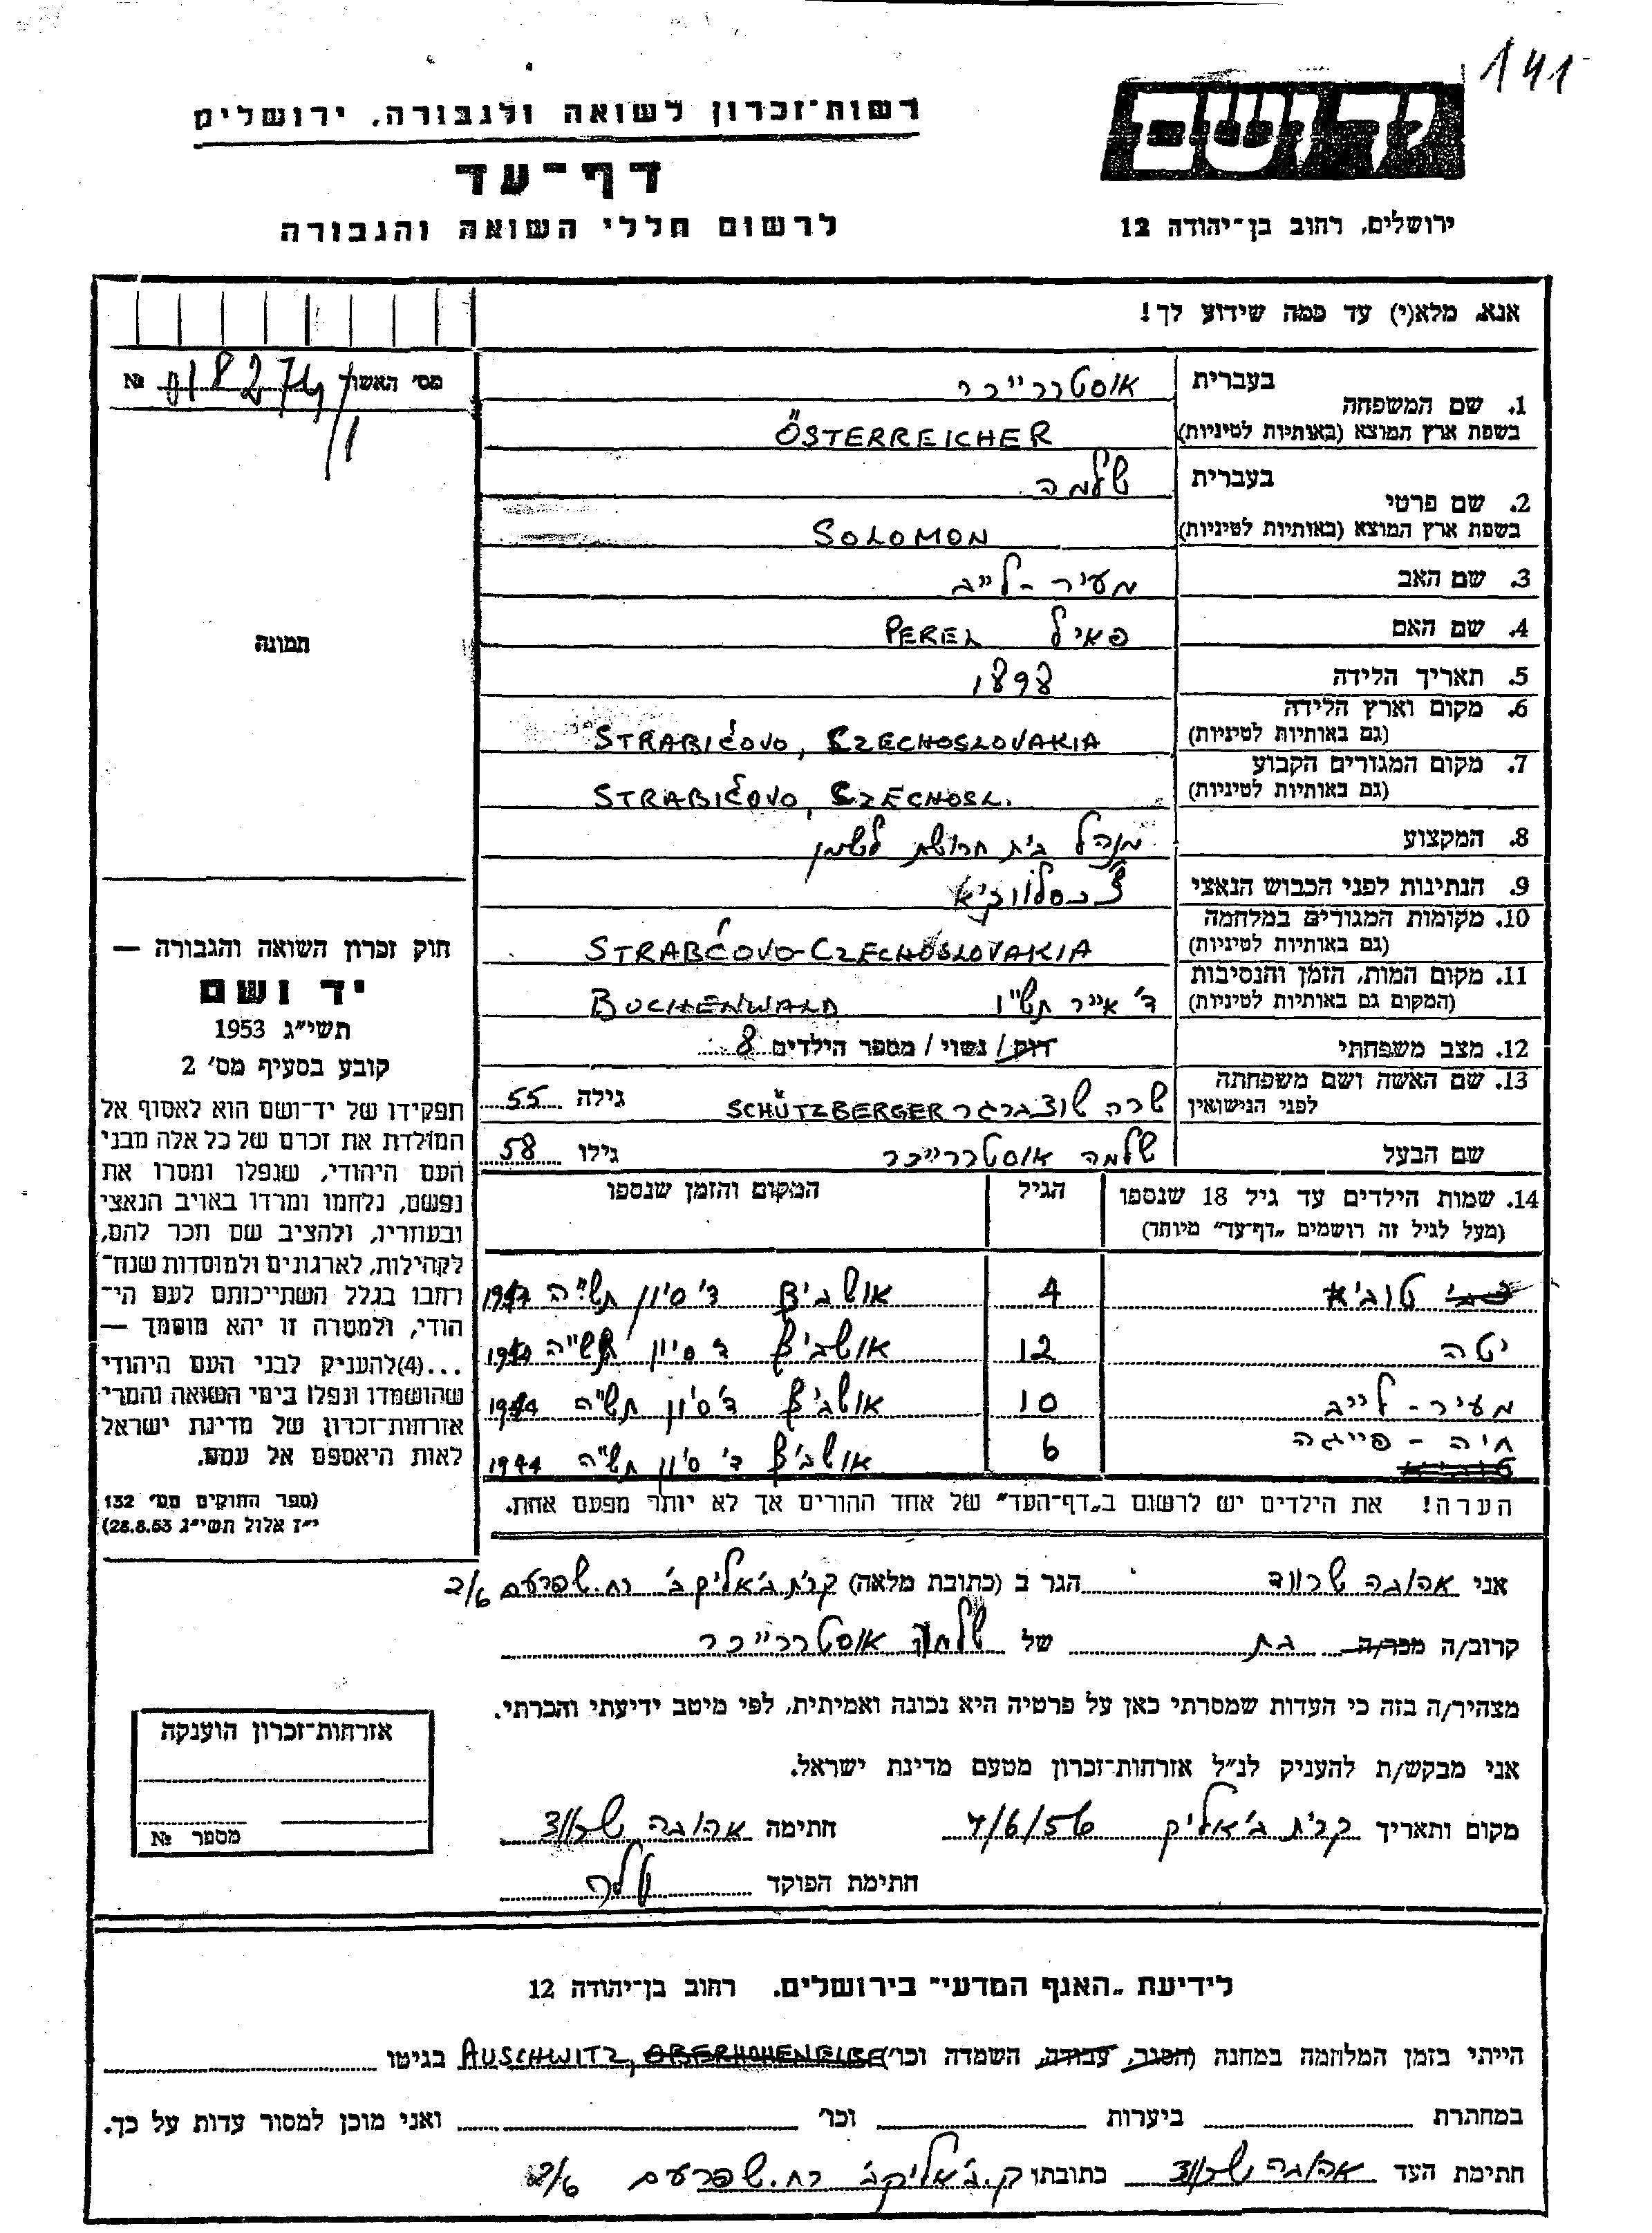 141
רשות־זכרון לשואה ולגבורה, ירושלים
דף־עד
לרשום חללי השואה והגבורה
יד ושם
ירושלים, רחוב בן־יהודה 12
אנא, מלא(י) עד כמה שידוע לך!
מס׳ האשור № 018274/1
בעברית אוסטררייכר
1. שם המשפחה
בשפת ארץ המוצא (באותיות לטיניות) ÖSTERREICHER
בעברית שלמה
2. שם פרטי
בשפת ארץ המוצא (באותיות לטיניות) SOLOMON
3. שם האב מעיר - לייב
4. שם האם PEREL
5. תאריך הלידה 1898
6. מקום וארץ הלידה
(גם באותיות לטיניות) STRABIČOVO, CZECHOSLOVAKIA
7. מקום המגורים הקבוע
(גם באותיות לטיניות) STRABIČOVO, CZECHOSL.
8. המקצוע מנהל בית חרושת לשמן
9. הנתינות לפני הכבוש הנאצי
10. מקומות המגורים במלחמה
(גם באותיות לטיניות) STRABČOVO-CZECHOSLOVAKIA
11. מקום המות, הזמן והנסיבות
(המקום גם באותיות לטיניות) ד' אייר BUCHENWALD
12. מצב משפחתי רווק / נשוי / מספר הילדים 8
13. שם האשה ושם משפחתה
לפני הנישואין שרה שוצברגר SCHÜTZBERGER גילה 55
שם הבעל שלמה אוסטררייכר גילו 58
14. שמות הילדים עד גיל 18 שנספו הגיל המקום והזמן שנספו
(מעל לגיל זה רושמים „דף־עד” מיוחד)
טוביא 4 אושביץ ד' סיון תש"ה
יטה 12 אושביץ ד' סיון תש"ה 1944
מעיר - לייב 10 אושביץ ד' סיון תש"ה 1944
חיה - פייגה 6 אושביץ ד' סיון תש"ה 1944
הערה! את הילדים יש לרשום ב„דף־העד” של אחד ההורים אך לא יותר מפעם אחת.
תמונה
חוק זכרון השואה והגבורה —
יד ושם
תשי״ג 1953
קובע בסעיף מס׳ 2
תפקידו של יד־ושם הוא לאסוף אל
המולדת את זכרם של כל אלה מבני
העם היהודי, שנפלו ומסרו את
נפשם, נלחמו ומרדו באויב הנאצי
ובעוזריו, ולהציב שם וזכר להם,
לקהילות, לארגונים ולמוסדות שנח־
רבו בגלל השתייכותם לעם הי־
הודי, ולמטרה זו יהא מוסמך —
...(4)להעניק לבני העם היהודי
שהושמדו ונפלו בימי השואה והמרי
אזרחות־זכרון של מדינת ישראל
לאות היאספם אל עמם.
(ספר החוקים מס׳ 132
י״ז אלול תשי״ג 28.8.53)
אני אהובה הגר ב (כתובת מלאה) קרית ביאליק ב' רח. שפרעם 2/6
קרוב/ה מכר/ה בת של שלמה אוסטררייכר
מצהיר/ה בזה כי העדות שמסרתי כאן על פרטיה היא נכונה ואמיתית, לפי מיטב ידיעתי והכרתי.
אני מבקש/ת להעניק לנ״ל אזרחות־זכרון מטעם מדינת ישראל.
מקום ותאריך קרית ביאליק 7/6/56 חתימה אהובה
חתימת הפוקד
אזרחות־זכרון הוענקה
מספר №
לידיעת „האגף המדעי” בירושלים. רחוב בן־יהודה 12
הייתי בזמן המלחמה במחנה (הסגר, עבודה, השמדה וכו׳) AUSCHWITZ, OBERHOHENELBE בגיטו
במחתרת ביערות וכו׳ ואני מוכן למסור עדות על כך.
חתימת העד אהובה כתובתו ק. ביאליק ב' רח. שפרעם 2/6